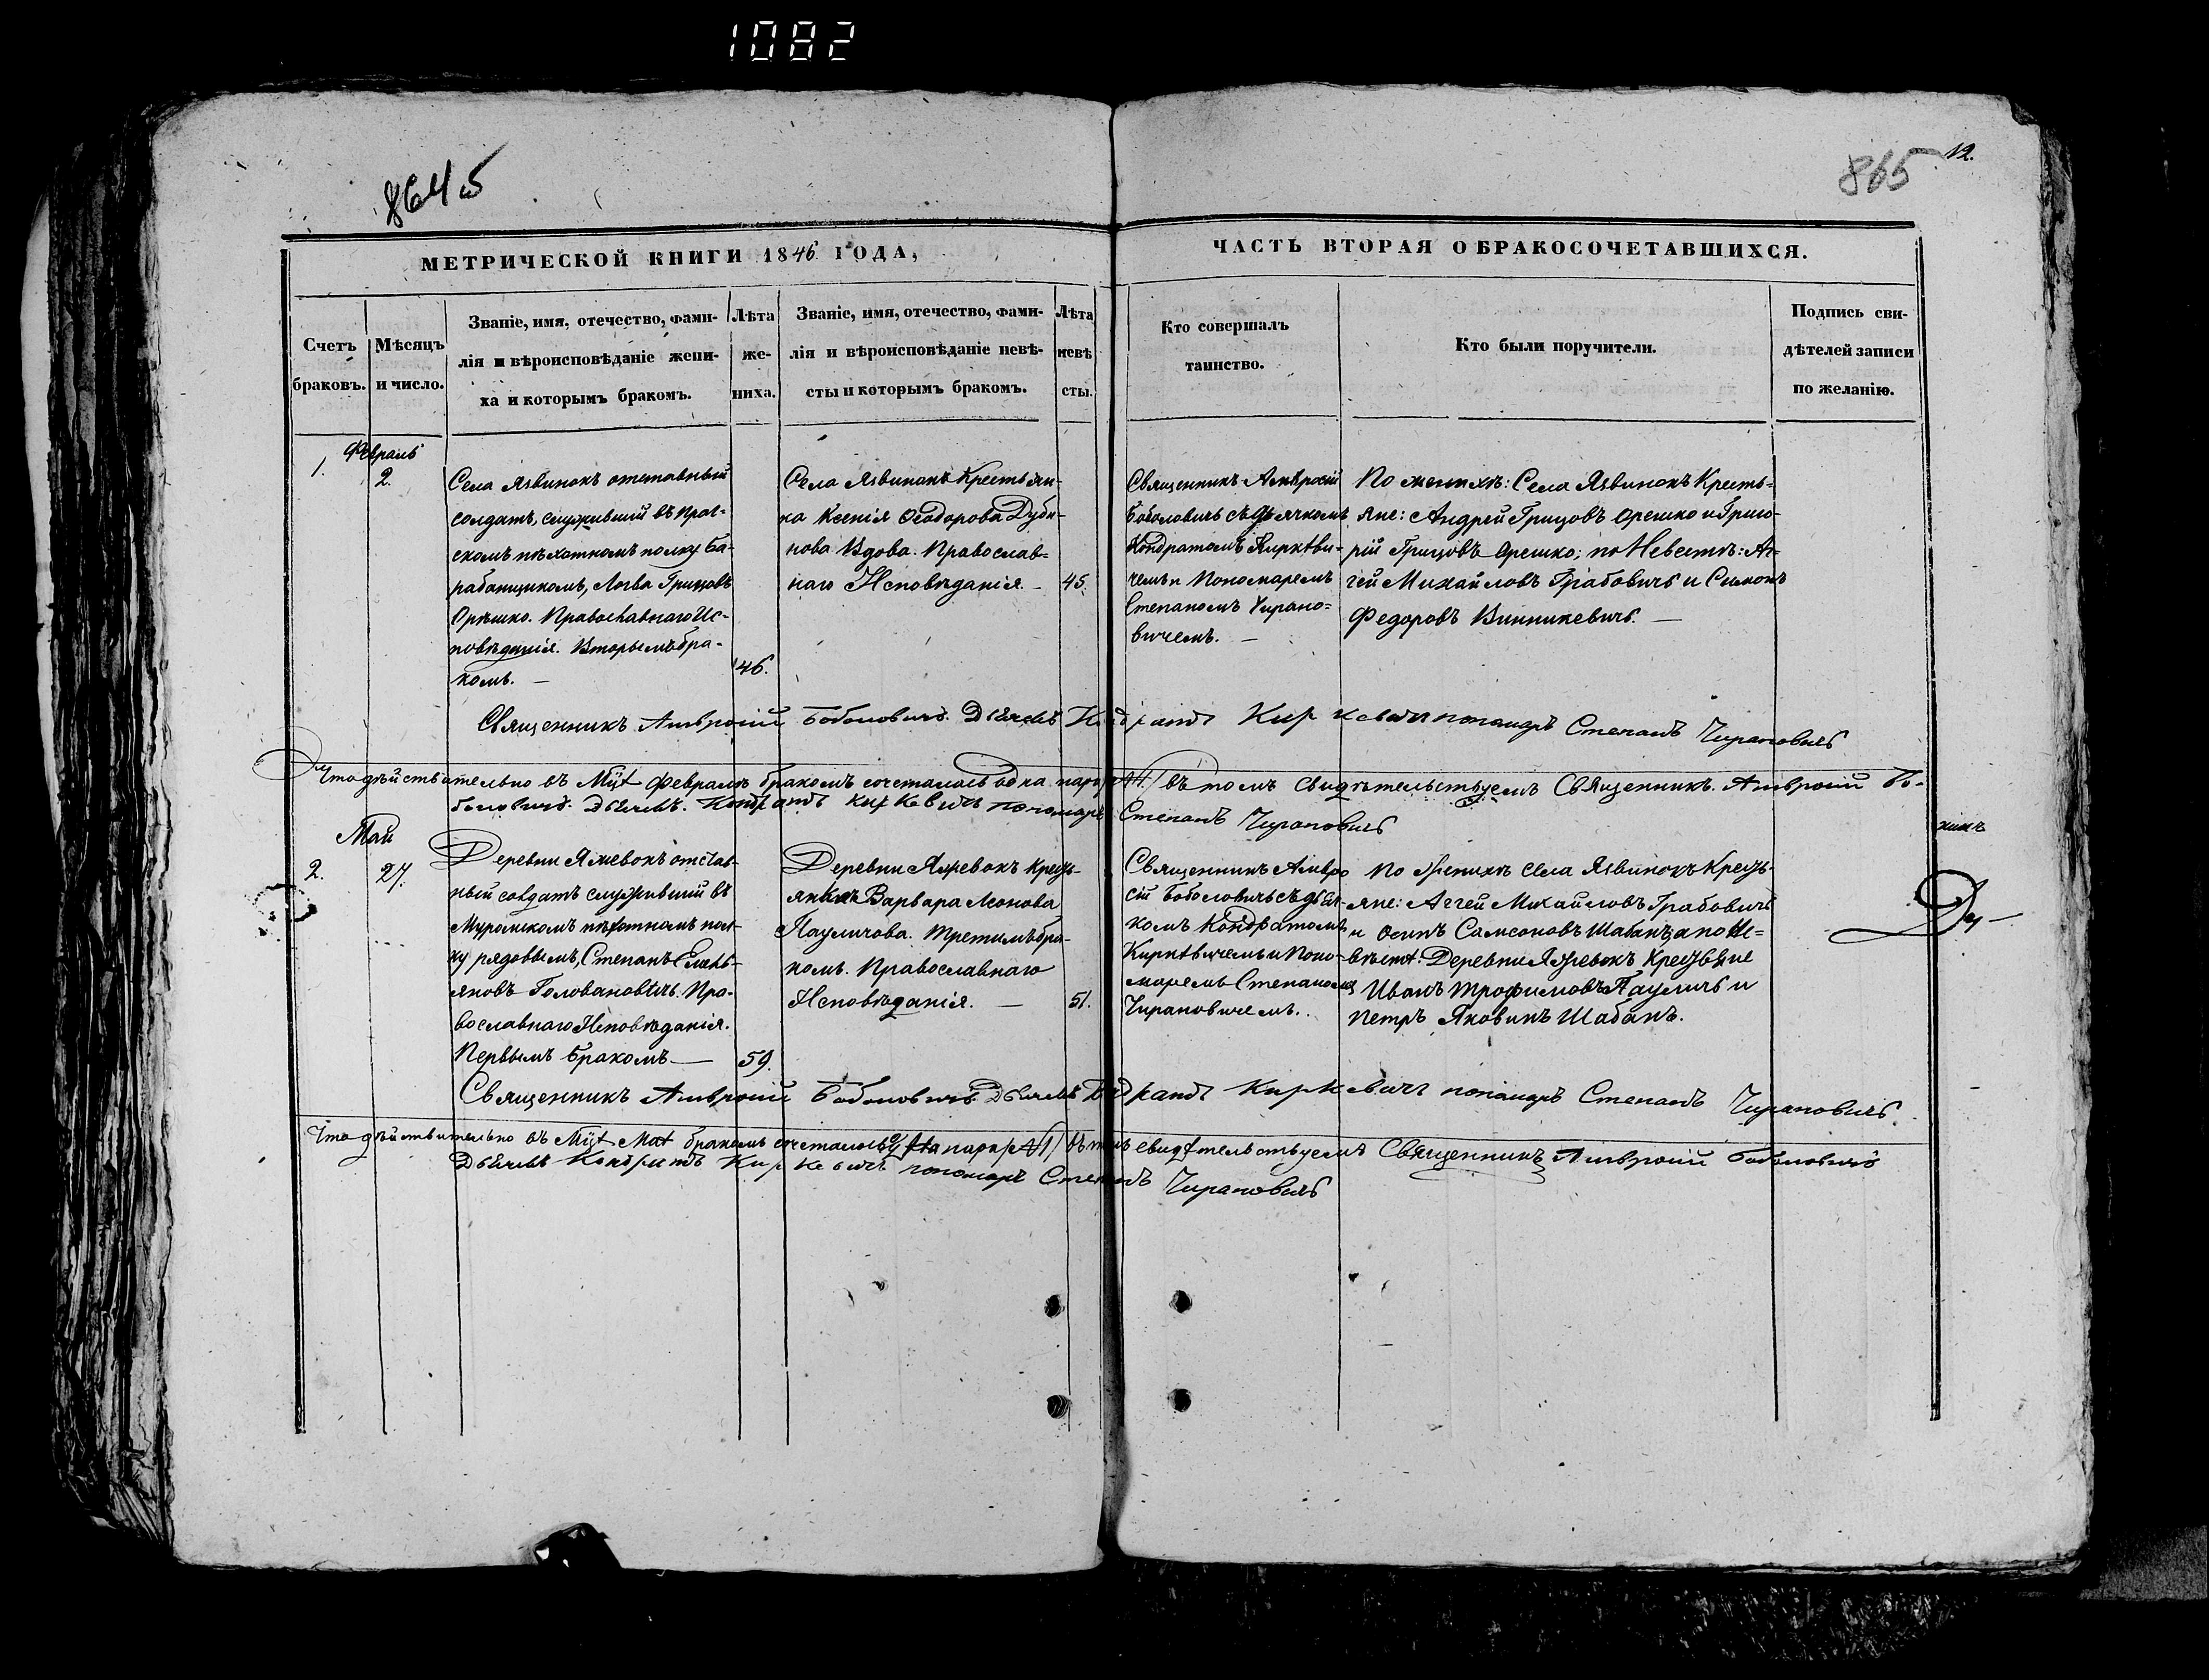 1082
8645
865
12.
МЕТРИЧЕСКОЙ КНИГИ 1846 ГОДА,
ЧАСТЬ ВТОРАЯ О БРАКОСОЧЕТАВШИХСЯ.
Счетъ
браковъ.
Мѣсяцъ
и число.
Званіе, имя, отечество, фами-
лія и вѣроисповѣданіе жени-
ха и которымъ бракомъ.
Лѣта
же-
ниха.
Званіе, имя, отечество, фами-
лія и вѣроисповѣданіе невѣ-
сты и которымъ бракомъ.
Лѣта
невѣ
сты.
Кто совершалъ
таинство.
Кто были поручители.
Подпись сви-
дѣтелей записи
по желанію.
Февраль
1.
2.
Села Язвинокъ отставный
солдатъ, служившій въ Праг-
скомъ пѣхотномъ полку ба-
рабанщикомъ, Логва Грицовъ
Орѣшко. Православнаго Ис-
повѣданія. Вторымъ бра-
комъ. —
46.
Села Язвинокъ Крестьян-
ка Ксенія Ѳеодорова Дуби-
нова Вдова. Православ-
наго Исповѣданія. —
45.
Священникъ Амвросій
Боболовичъ съ дьячкомъ
Кондратомъ Киркѣви-
чемъ и Пономаремъ
Степаномъ Чирано-
вичемъ. —
По женихѣ: Села Язвинокъ Кресть-
яне: Андрей Грицовъ Орешко и Григо-
рій Грицовъ Орешко; по Невестѣ: Аг-
гей Михайловъ Грабовичъ и Симонъ
Федоровъ Винникевичъ. —
Священникъ Амвросій Боболовичъ. Дьячекъ Кондратъ Киркевичъ пономарь Степанъ Чирановичъ
Что дѣйствительно въ Мцѣ Февралѣ бракомъ сочеталось одна пара /№1/ въ томъ свидѣтельствуемъ Священникъ. Амвросій Бо-
боловичъ. Дьячекъ. Кондратъ Киркевичъ пономарь Степанъ Чирановичъ
Май
2.
27.
Деревни Яжевокъ отстав-
ный солдатъ служившій въ
Муромскомъ пѣхотномъ пол-
ку рядовымъ, Степанъ Емель-
яновъ Головановичъ. Пра-
вославнаго Исповѣданія.
Первымъ бракомъ —
59.
Деревни Яжевокъ Кресть-
янка Варвара Леонова
Пауличова. Третимъ бра-
комъ. Православнаго
Исповѣданія. —
51.
Священникъ Амвро
сій Боболовичъ съ дьяч-
комъ Кондратомъ
Киркѣвичемъ и Поно-
маремъ Степаномъ
Чирановичемъ.
По Женихѣ Села Язвинокъ Кресть-
яне: Аггей Михайловъ Грабовичъ
и Осипъ Самсоновъ Шабанъ, а по Не-
вѣстѣ: Деревни Яжевокъ Крестьяне
Иванъ Трофимовъ Пауличъ и
Петръ Яковинъ Шабанъ.
Священникъ Амвросій Боболовичъ. Дьячекъ Кондратъ Киркевичъ пономарь Степанъ Чирановичъ.
Что дѣйствительно въ Мцѣ Маѣ бракомъ сочеталось одна пара /№1/ въ томъ свидѣтельствуемъ Священникъ Амвросій Боболовичъ
Дьячекъ Кондратъ Киркевичъ пономарь Степанъ Чирановичъ